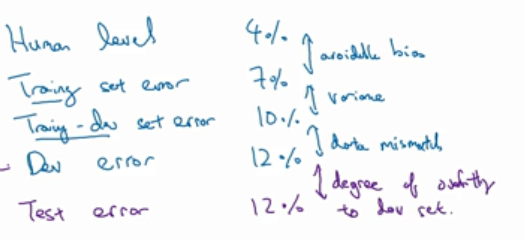 Human level 4%
avoidable bias
Training set error 7%
variance
Training-dev set error 10%
data mismatch
Dev error 12%
degree of overfitting
to dev set.
Test error 12%